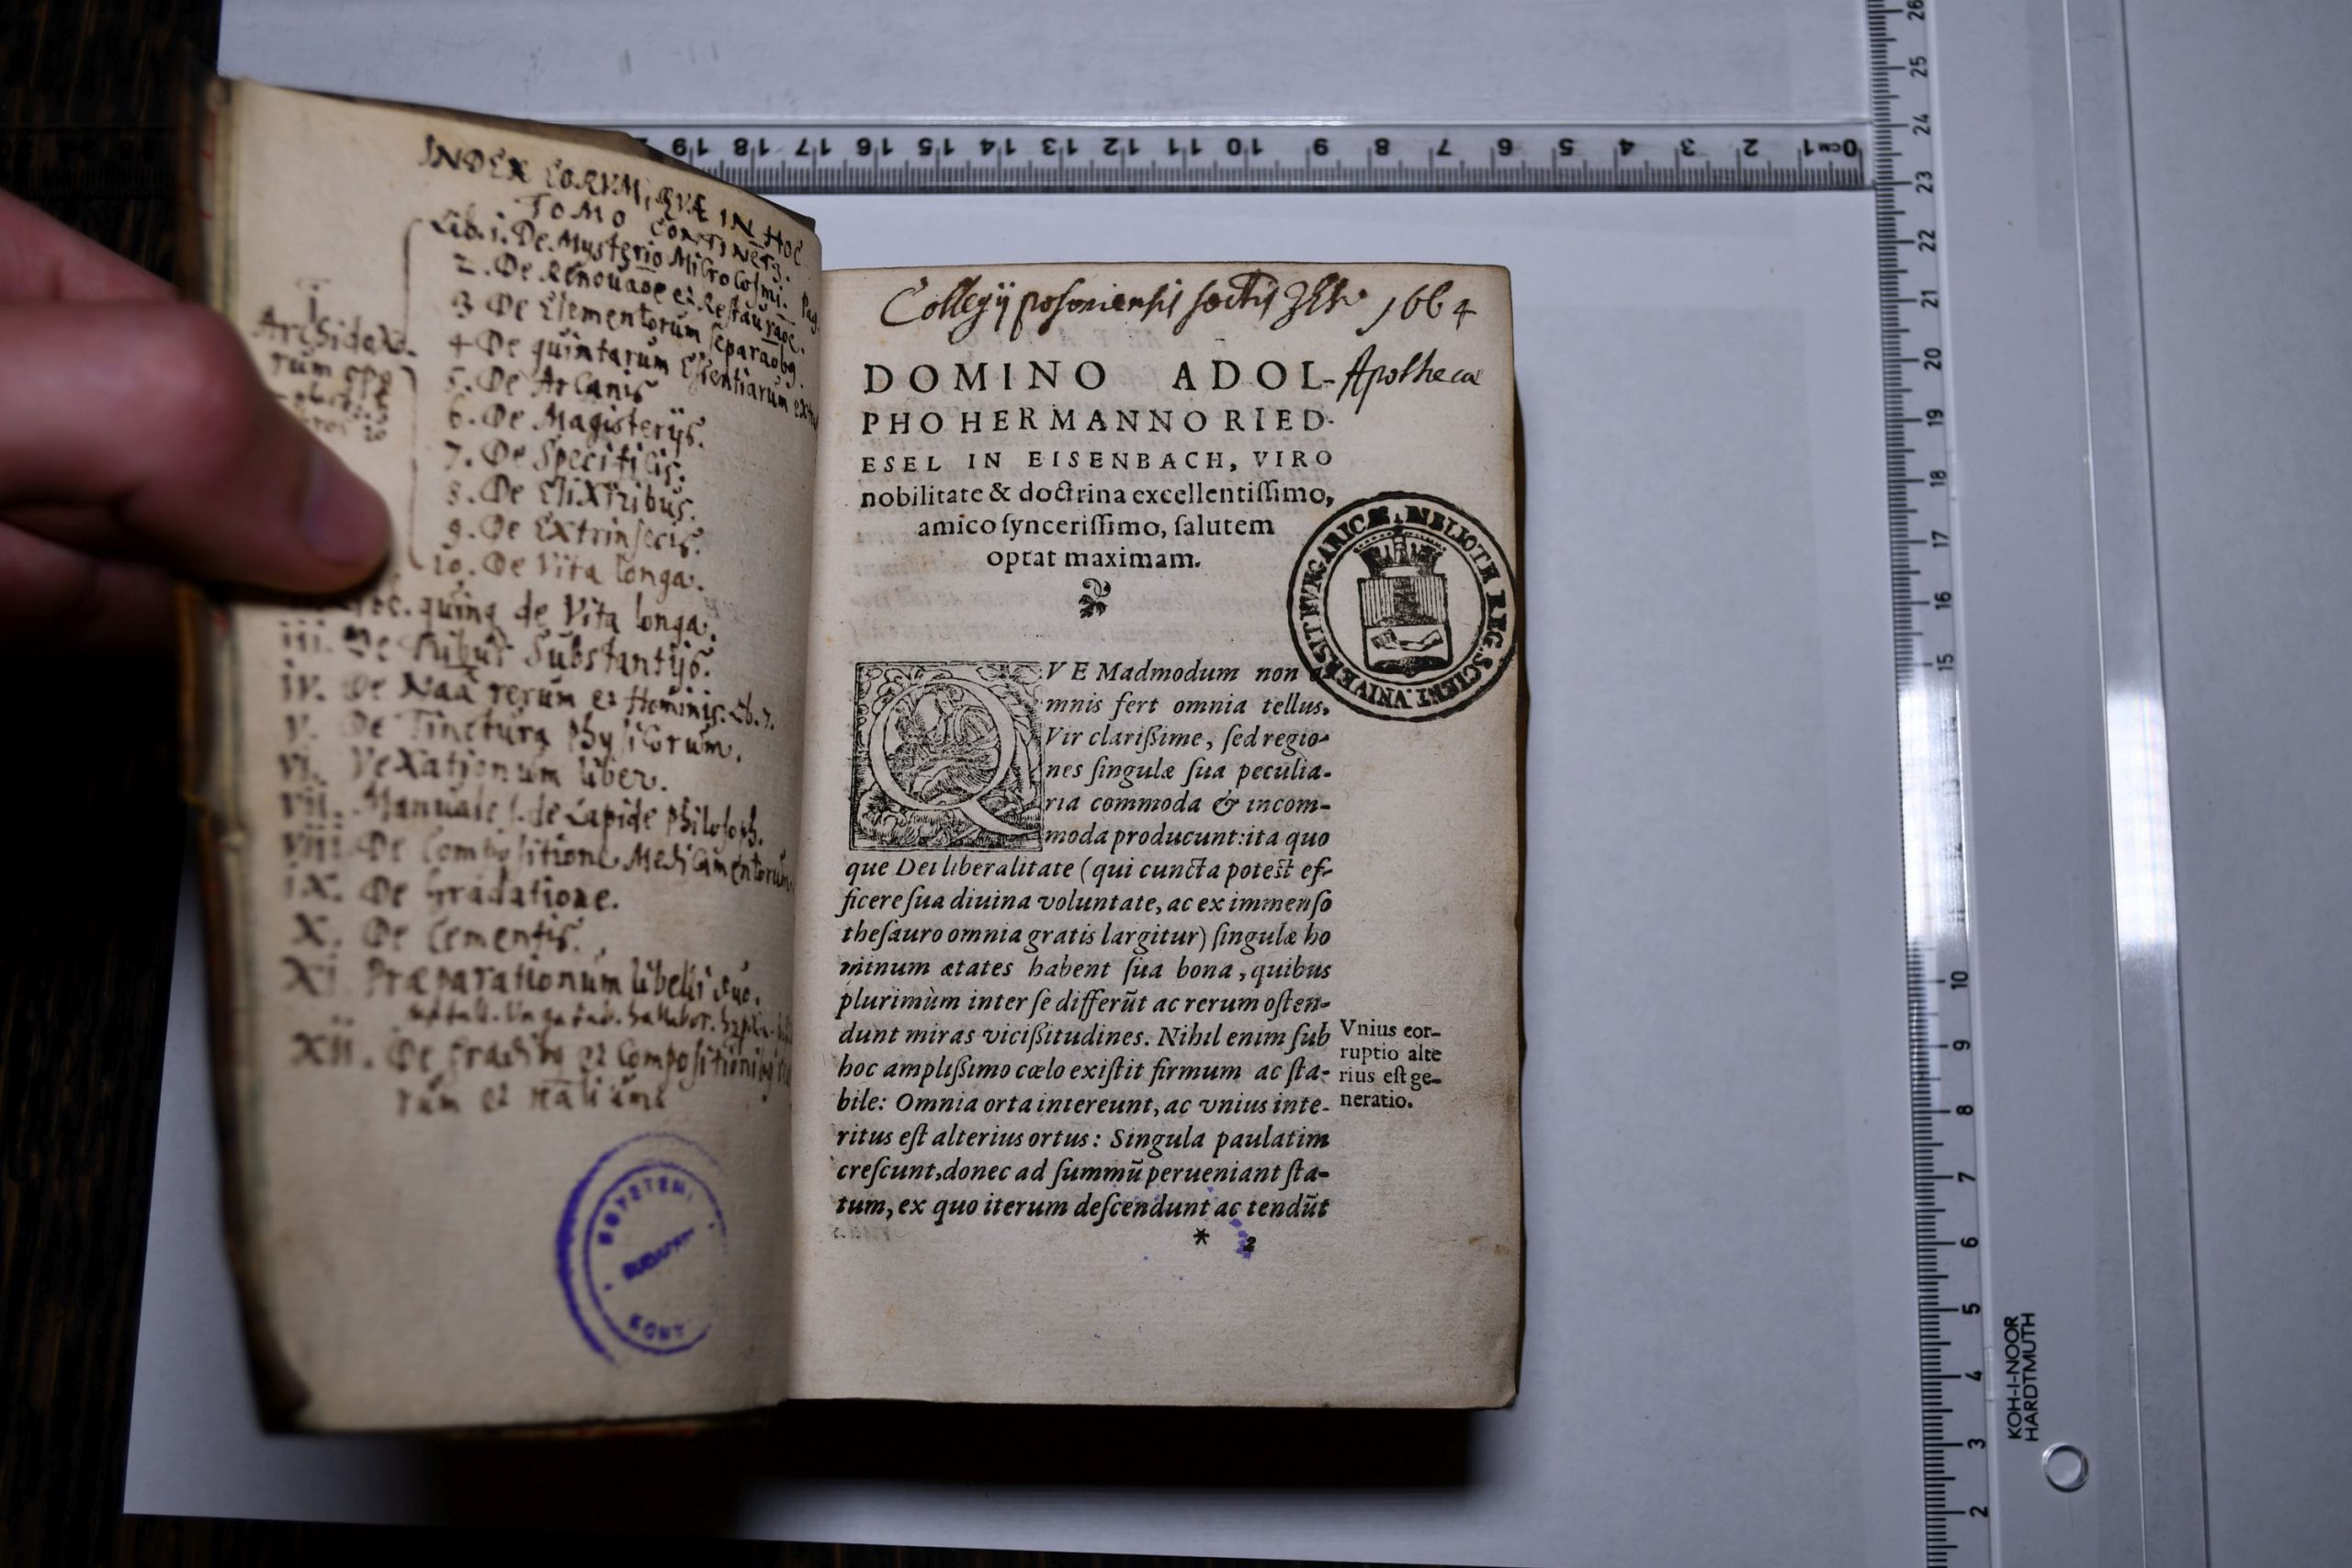 INDEX EORVM, QVÆ IN HOC
TOMO
Lib. 1. De Mysterio Microcosmi.
2. De et
3. De Elementorum
4 De quintarum Essentiarum
5. De Arcanis
6. De Magisterijs.
7. De Specificis.
8. De Elixiribus.
9. De Extrinsecis.
10. De Vita longa.
de Vita longa.
iii. De Substantijs.
iv. De rerum et Hominis.
v. De Tinctura Physicorum.
vi. Vexationum liber.
vii. Manuale de Lapide Philosoph.
viii De Compositione Medicamentorum
ix. De Gradatione.
X. De Cementis.
Xi. Præparationum libelli duo.
xii. De et
rum et
Collegij posoniensis 1664
Apothecæ
DOMINO ADOL-
PHO HERMANNO RIED-
ESEL IN EISENBACH, VIRO
nobilitate & doctrina excellentiſſimo,
amico ſynceriſſimo, ſalutem
optat maximam.
VNIVERSIT. HVNGARICÆ BIBLIOTH. REG. SCIENT.
QVEMadmodum non o
mnis fert omnia tellus,
Vir clariſsime, ſed regio-
nes ſingulæ ſua peculia-
ria commoda & incom-
moda producunt: ita quo
que Dei liberalitate (qui cuncta poteſt ef-
ficere ſua diuina voluntate, ac ex immenſo
theſauro omnia gratis largitur) ſingulæ ho
minum ætates habent ſua bona, quibus
plurimùm inter ſe differūt ac rerum oſten-
dunt miras viciſsitudines. Nihil enim ſub
hoc ampliſsimo cœlo exiſtit firmum ac ſta-
bile: Omnia orta intereunt, ac vnius inte-
ritus eſt alterius ortus: Singula paulatim
creſcunt, donec ad ſummū perueniant ſta-
tum, ex quo iterum deſcendunt ac tendūt
* 2
Vnius cor-
ruptio alte
rius eſt ge-
neratio.
0cm1 2 3 4 5 6 7 8 9 10 11 12 13 14 15 16 17 18 19
26
25
24
23
22
21
20
19
18
17
16
15
10
9
8
7
6
5
4
3
2
KOH-I-NOOR
HARDTMUTH